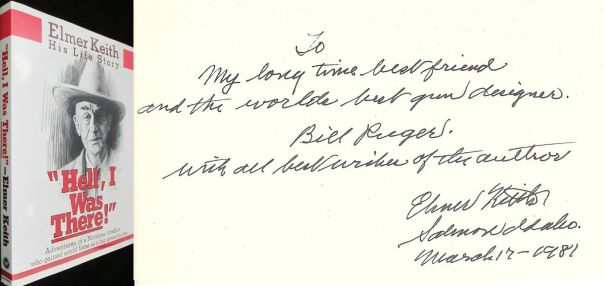 Elmer Keith
His Life Story
"Hell, I
Was
There!"
Adventures of a Montana cowboy
who gained world fame as a big game hunter
"Hell, I Was There!" – Elmer Keith
To
My long time best friend
and the worlds best gun designer.
Bill Ruger.
with all best wishes of the author
Elmer Keith
Salmon Idaho.
March 17-1981